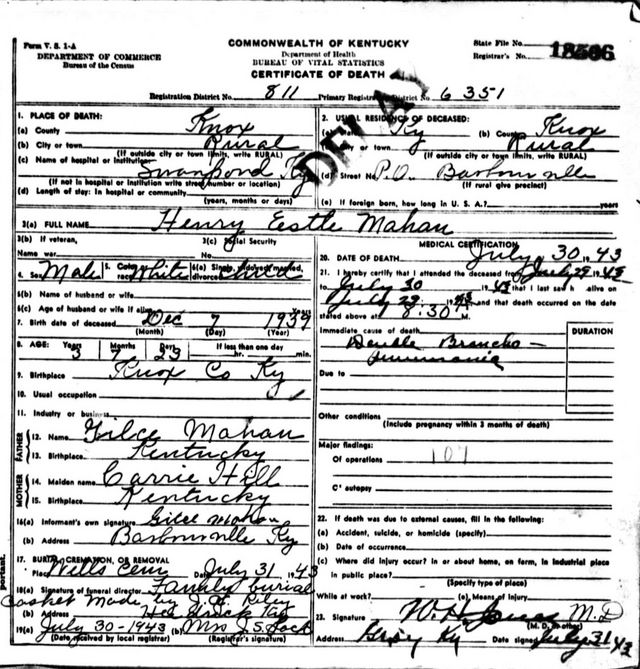 Form V. S. 1-A
DEPARTMENT OF COMMERCE
Bureau of the Census
COMMONWEALTH OF KENTUCKY
Department of Health
BUREAU OF VITAL STATISTICS
CERTIFICATE OF DEATH
State File No. 18506
Registrar's No.
DELAY
Registration District No. 811 Primary Registration District No. 6351
1. PLACE OF DEATH:
(a) County Knox
(b) City or town Rural
(If outside city or town limits, write RURAL)
(c) Name of hospital or institution: Swanpond Ky
(If not in hospital or institution write street number or location)
(d) Length of stay: In hospital or community
(years, months or days)
2. USUAL RESIDENCE OF DECEASED:
(a) State Ky (b) County Knox
(c) City or town Rural
(If outside city or town limits, write RURAL)
(d) Street No. P.O. Barbourville
(If rural give precinct)
(e) If foreign born, how long in U. S. A.? years
3(a) FULL NAME Henry Estle Mahan
3(b) If veteran, 3(c) Social Security
Name war No.
4. Sex Male 5. Color or race White 6(a) Single, widowed, married, divorced
6(b) Name of husband or wife
6(c) Age of husband or wife if alive years
7. Birth date of deceased Dec 7 1939
(Month) (Day) (Year)
8. AGE: Years Months Days If less than one day
3 7 23 hr. min.
9. Birthplace Knox Co Ky
10. Usual occupation
11. Industry or business
FATHER
12. Name Gilce Mahan
13. Birthplace Kentucky
MOTHER
14. Maiden name Carrie Hill
15. Birthplace Kentucky
16(a) Informant's own signature Gilce Mahan
(b) Address Barbourville Ky
17. BURIAL, CREMATION, OR REMOVAL
Place Wills Cem Date July 31 1943
18(a) Signature of funeral director Family burial
Casket Made by
(b) Address
19(a) July 30-1943 (b) Mrs J.S. Lock
(Date received by local registrar) (Registrar's signature)
MEDICAL CERTIFICATION
20. DATE OF DEATH July 30 1943
21. I hereby certify that I attended the deceased from July 29 1943
to July 30 1943 that I last saw h alive on
July 29 1943 and that death occurred on the date
stated above at 8:30 M.
Immediate cause of death DURATION
Double Broncho-
pneumonia
Due to
Other conditions
(Include pregnancy within 3 months of death)
Major findings:
Of operations 107
Of autopsy
22. If death was due to external causes, fill in the following:
(a) Accident, suicide, or homicide (specify)
(b) Date of occurrence
(c) Where did injury occur? In or about home, on farm, in industrial place
in public place?
(Specify type of place)
While at work? (e) Means of injury
23. Signature W. H. M D
(M. D. or other)
Address Gray Ky Date signed July 31 43
portant.